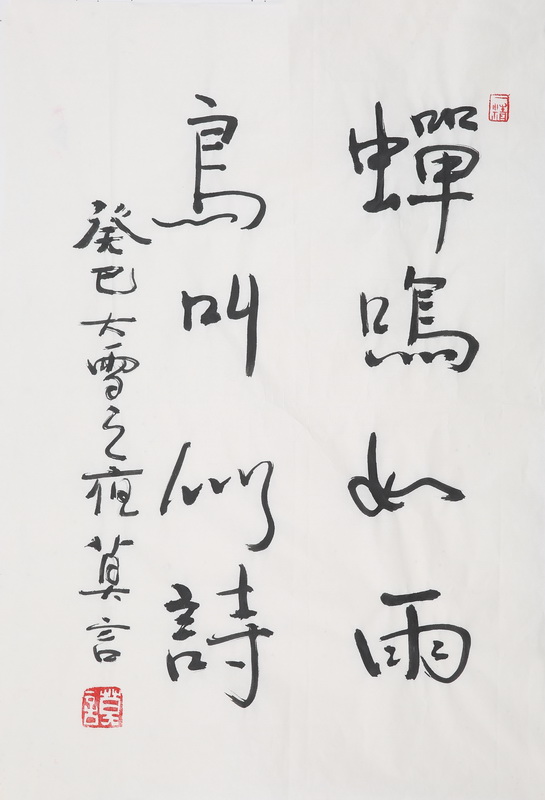 蟬鳴如雨
鳥叫似詩
癸巳大雪之夜莫言
莫言